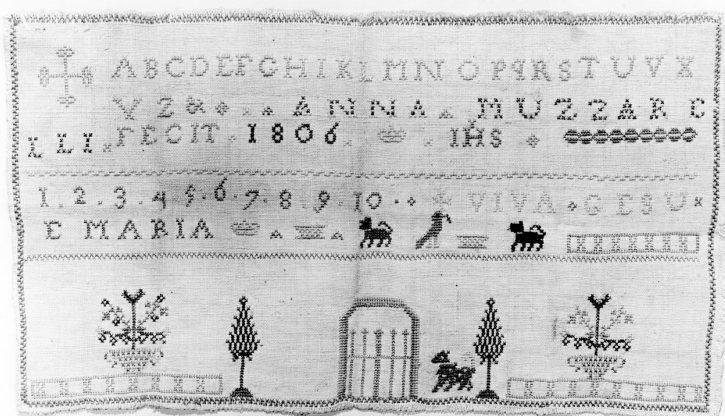 ABCDEFGHIKLMNOPQRSTUVX
VZ& ANNA MUZZARE
LLI FECIT 1806 IHS
1.2.3.4.5.6.7.8.9.10.. VIVA GESU
E MARIA